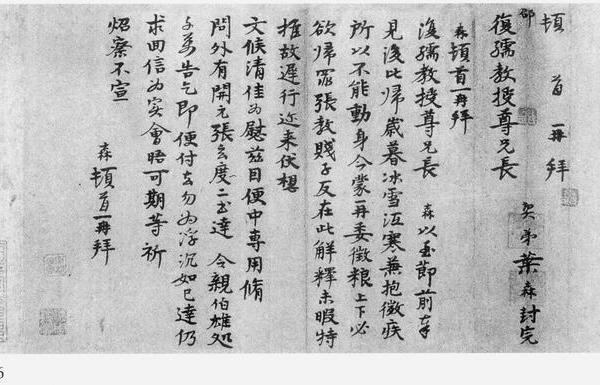 頓首再拜
復孺教授尊兄長
契弟葉森封完
邵
森頓首再拜
復孺教授尊兄長 森以至節前奉
見後比歸歲暮冰雪沍寒兼抱微疾
所以不能動身今蒙再委徵粮上下必
欲歸罪張教賤子反在此解釋未暇特
推故遲行迩来伏想
文候清佳為慰茲因便中專用脩
問外有開元張玄度二書達 令親伯雄処
千万告乞即便付去勿為浮沉如已達仍
求回信為宲會晤可期等祈
炤察不宣
森頓首再拜